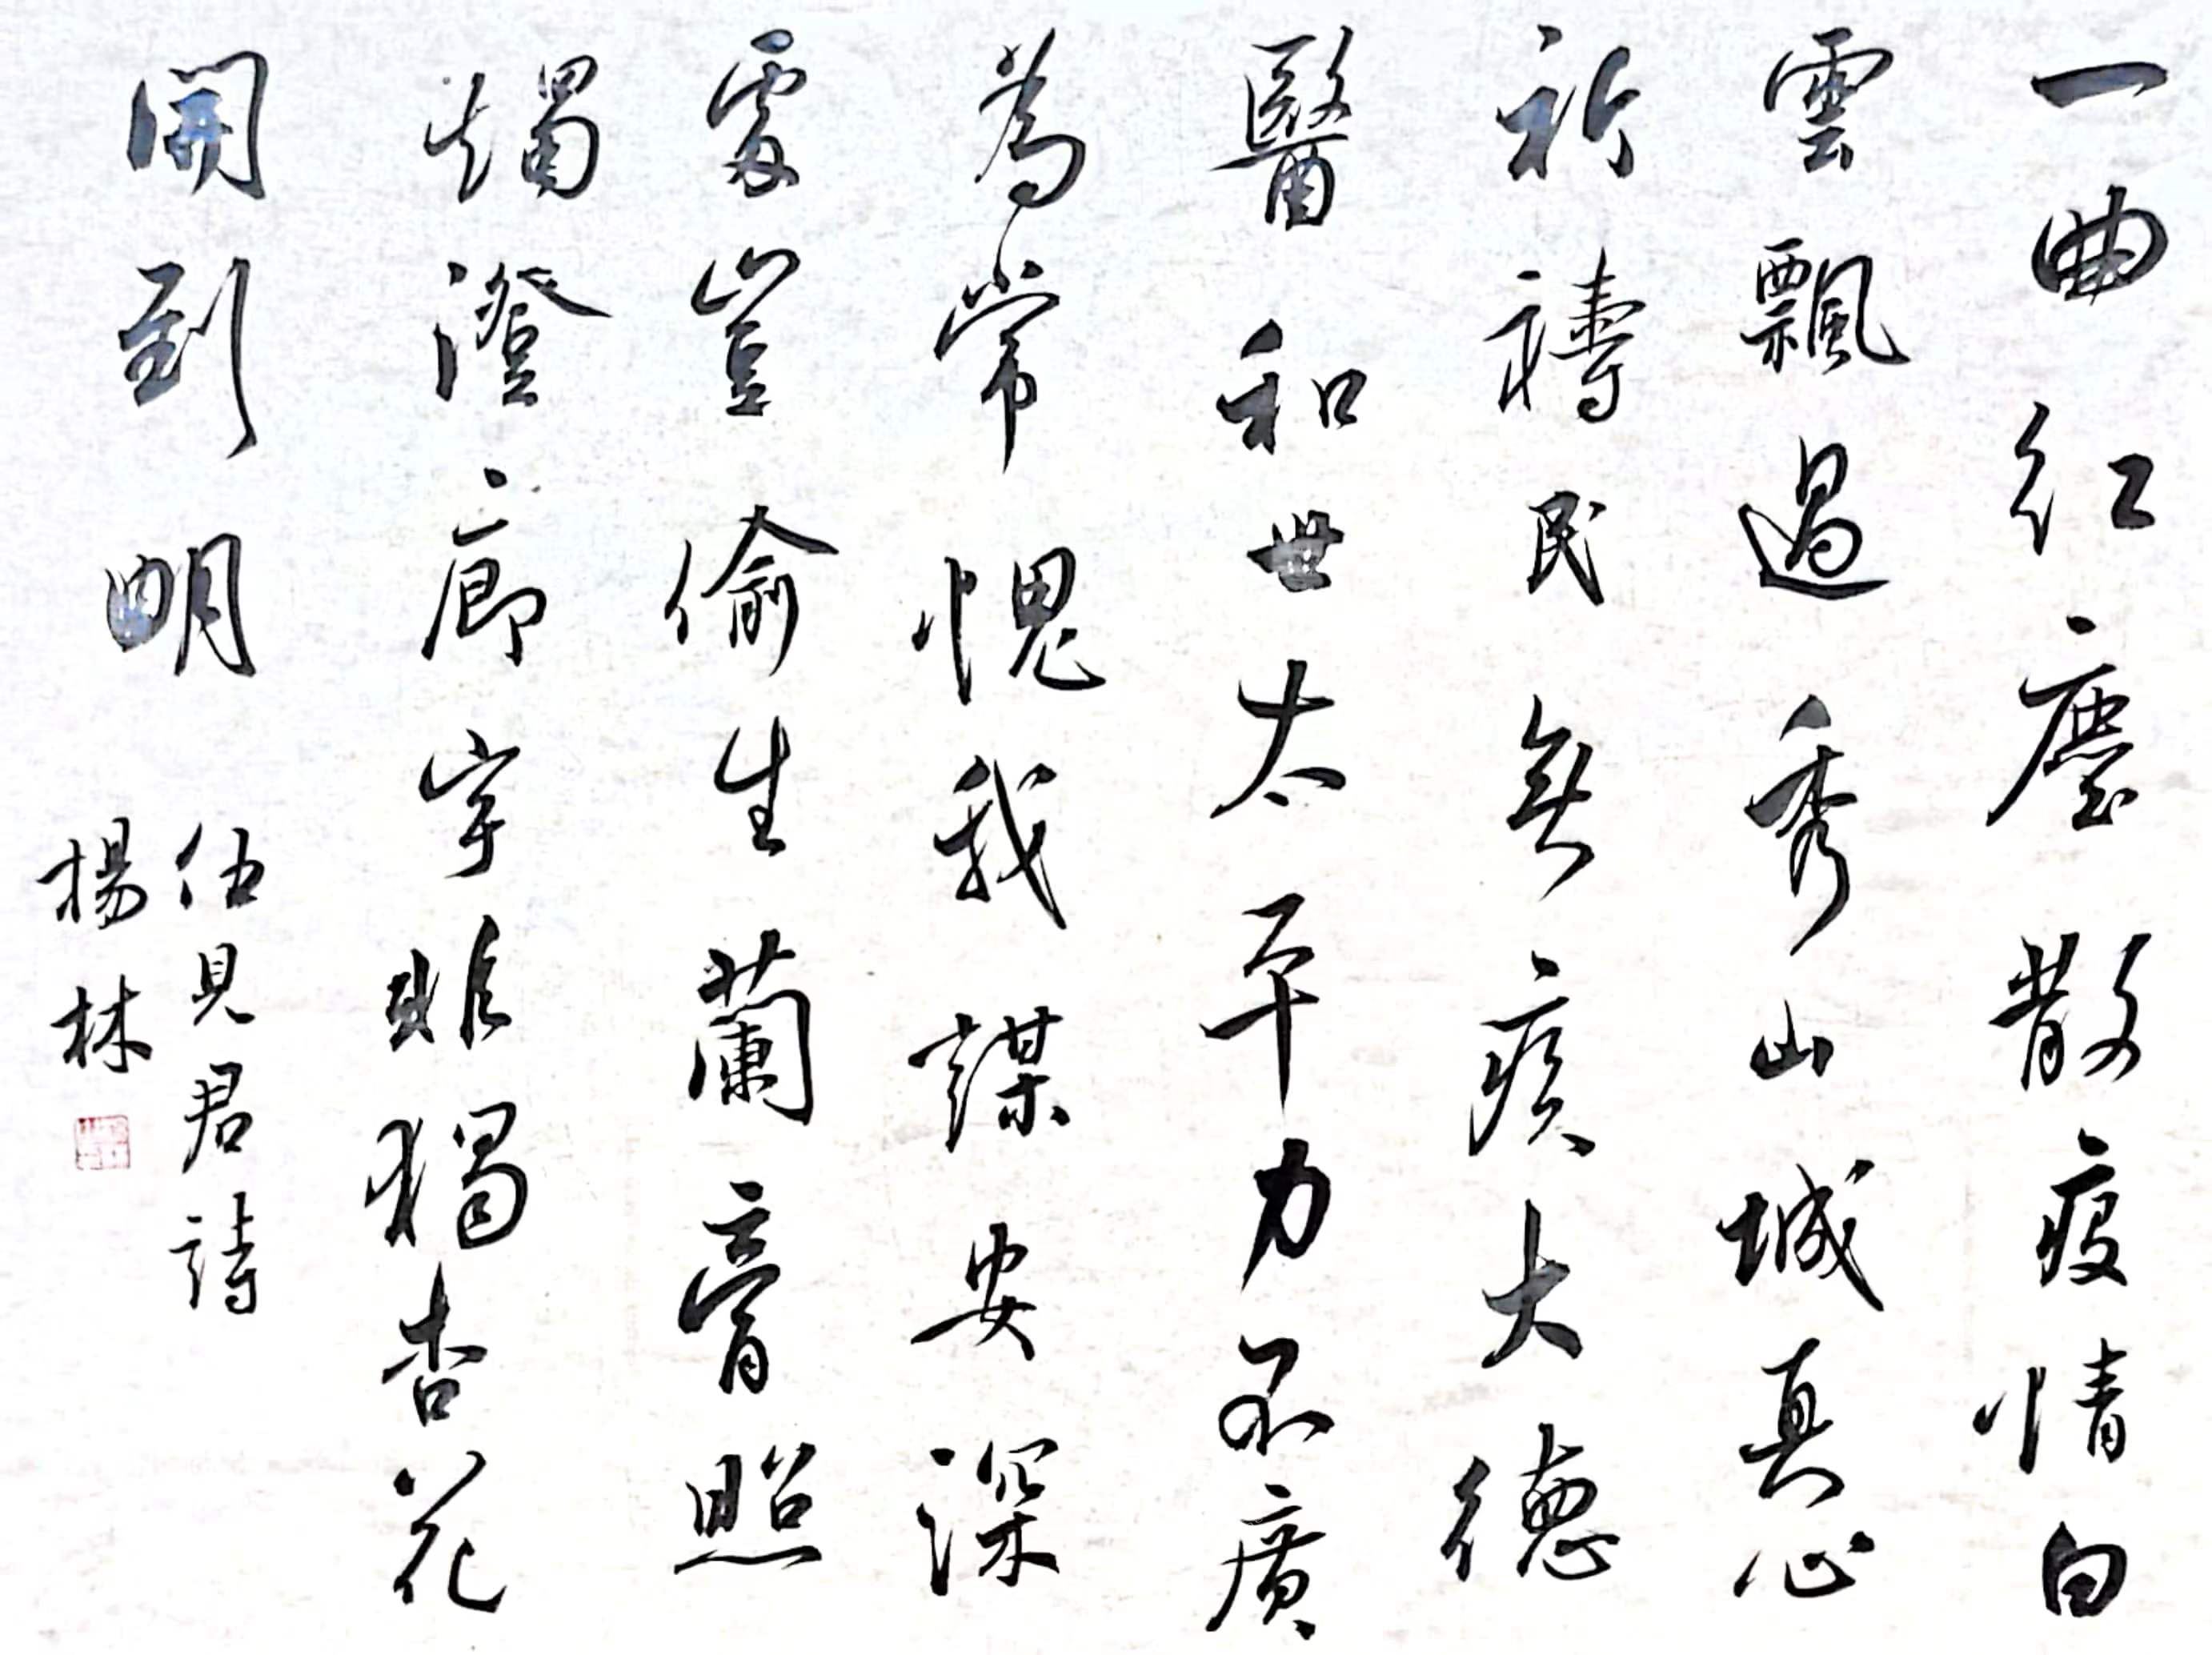 一曲紅塵散疫情白
雲飄過秀山城真心
祈禱民無疾大德
醫和世太平力不廣
為常愧我謀安深
處豈偷生蘭膏照
燭澄廊宇唯獨杏花
開到明
伍見君詩
楊林